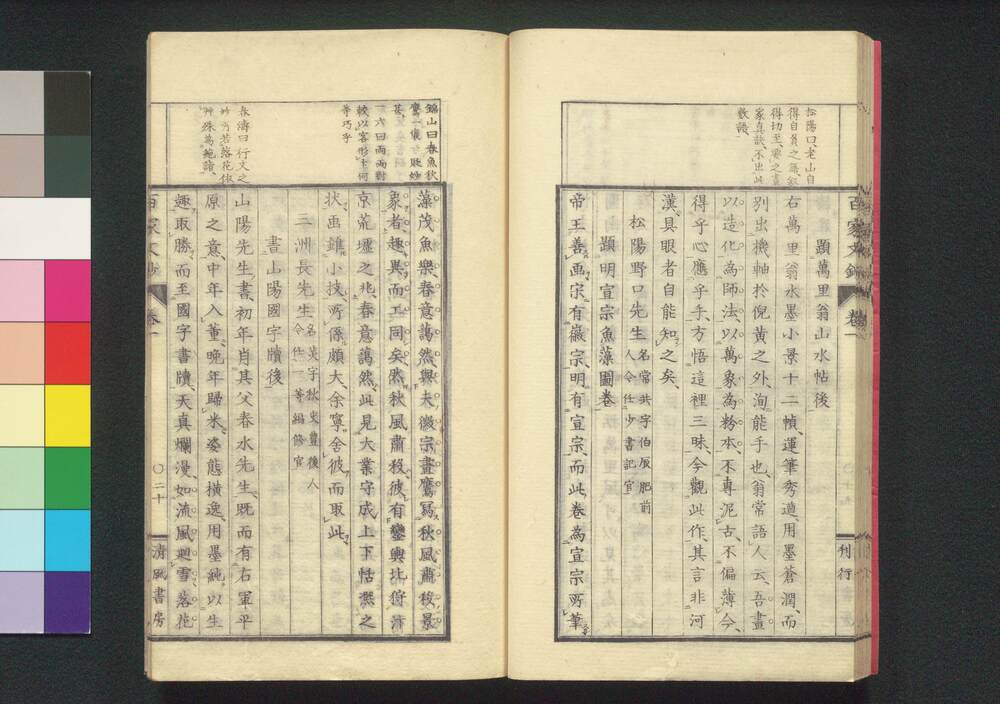 題萬里翁山水帖後
右萬里翁水墨小景十二幀、運筆秀逎、用墨蒼潤、而
別出機軸於倪黄之外、洵能手也、翁常語人云、吾畫
以造化為師法、以萬象為粉本、不專泥古、不偏薄今、
得乎心應乎手、方悟這裡三昧、今觀此作、其言非河
漢、具眼者自能知之矣、
松陽野口先生 名常共字伯辰肥前人今任少書記官
題明宣宗魚藻圖卷
帝王善画、宋有徽宗、明有宣宗、而此卷為宣宗所筆
松陽曰、老山自
得切至、要之畫
家真訣、不出此
數語、
百家文鈔 卷一
刊行
藻茂魚樂、春意藹然、與夫徽宗畫鷹冩秋風肅殺景
象者、趣異而工同矣、然秋風肅殺、彼有鑾輿北狩
京荒墟之兆、春意藹然、此見大業守成、上下恬凞之
状、画雖小技、所係頗大、余寧舍彼而取此、
三洲長先生 名炗字秋史豊後人今任一等編修官
書山陽國字牘後
山陽先生書、初年肖其父春水先生、既而有右軍平
原之意、中年入董、晩年歸米、姿態横逸、用墨純以生
趣取勝、而至國字書牘、天真爛漫、如流風廻雪、落花
錦山曰春魚秋
較以客形主何
等巧乎
春濤曰行文之
妙亦若落花依
百家文鈔 卷一
二十
清風書房